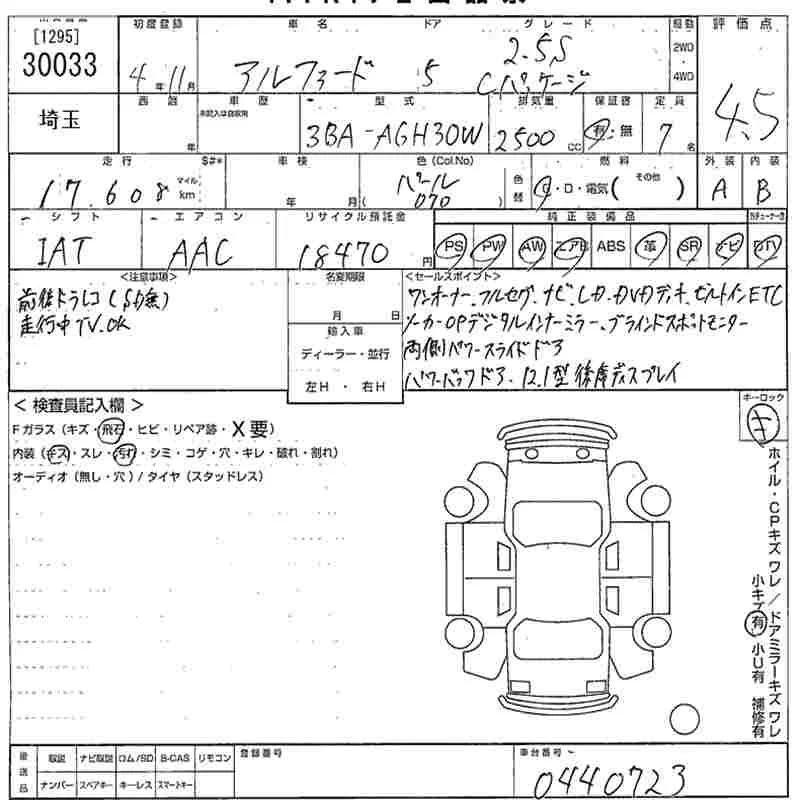 [1295]
30033
初度登録
車名
ドア
グレード
駆動
評価点
4年11月
アルファード
5
2.5S
Cパッケージ
2WD
4WD
4.5
埼玉
西暦
年
車歴
未記入は自家用
型式
3BA-AGH30W
排気量
2500cc
保証書
有・無
定員
7名
走行
S#*
17.608
マイル
km
車検
年 月
色(Col.No)
パール
(070)
色替
燃料
G・D・電気(その他 )
外装
A
内装
B
シフト
IAT
エアコン
AAC
リサイクル預託金
18470円
純正装備品
PS PW AW エアB ABS 革 SR ナビ
<注意事項>
前後ドラレコ(SD無)
走行中TV.OK
名変期限
月 日
輸入車
ディーラー・並行
左H ・ 右H
<セールスポイント>
ワンオーナー、フルセグ、ナビ、しD、DVDデッキ、ビルトインETC
メーカーOPデジタルインナーミラー、ブラインドスポットモニター
両側パワースライドドア
パワーバックドア、12.1型後席ディスプレイ
< 検査員記入欄 >
Fガラス(キズ・飛石・ヒビ・リペア跡・X要)
内装(キズ・スレ・汚れ・シミ・コゲ・穴・キレ・破れ・割れ)
オーディオ(無し・穴)/タイヤ(スタッドレス)
キーロック
キ
ホイル・CPキズワレ/ドアミラーキズワレ
小キズ有 小U有 補修有
後送品
取説 ナビ取説 ロム/SD B-CAS リモコン
ナンバー スペアキー キーレス スマートキー
登録番号
車台番号
0440723